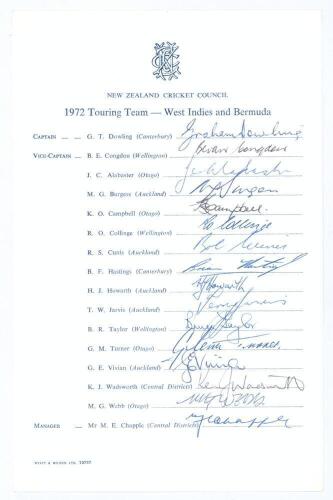 NEW ZEALAND CRICKET COUNCIL
1972 Touring Team — West Indies and Bermuda
CAPTAIN — — G. T. Dowling (Canterbury) Graham Dowling
VICE-CAPTAIN — B. E. Congdon (Wellington) Bevan Congdon
J. C. Alabaster (Otago)
M. G. Burgess (Auckland) M G Burgess
K. O. Campbell (Otago) K Campbell.
R. O. Collinge (Wellington) R O Collinge
R. S. Cunis (Auckland) Bob Cunis
B. F. Hastings (Canterbury) Brian Hastings
H. J. Howarth (Auckland) H J Howarth
T. W. Jarvis (Auckland) Terry Jarvis
B. R. Taylor (Wellington) Bruce Taylor
G. M. Turner (Otago) Glenn Turner
G. E. Vivian (Auckland) G Vivian
K. J. Wadsworth (Central Districts) Ken Wadsworth
M. G. Webb (Otago) M G Webb
MANAGER — Mr M. E. Chapple (Central Districts) M E Chapple